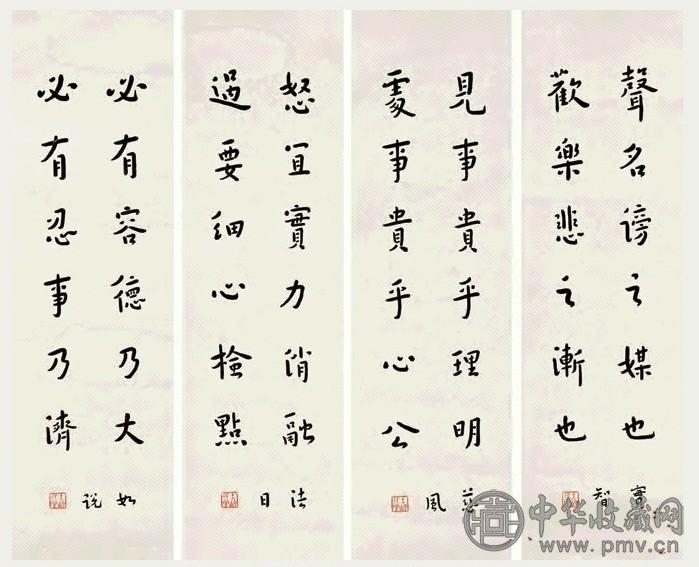 聲名謗之媒也
歡樂悲之漸也
寶智
見事貴乎理明
處事貴乎心公
慈風
怒宜實力消融
過要細心檢點
法日
必有容德乃大
必有忍事乃濟
如說
中华收藏网
www.pmv.cn